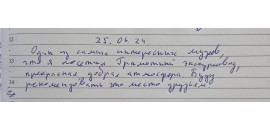 25.04.24
Один из самых интересных музеев,
что я посетил. Грамотный экскурсовод,
прекрасная добрая атмосфера. Буду
рекомендовать это место друзьям